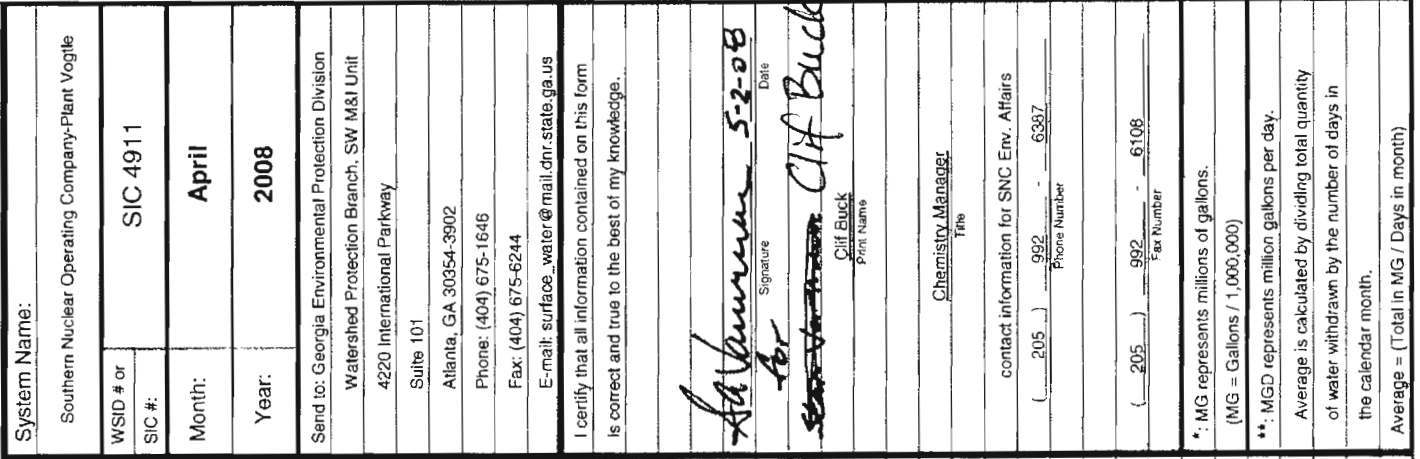 System Name:
Southern Nuclear Operating Company-Plant Vogtle
WSID # or
SIC #:
SIC 4911
Month:
April
Year:
2008
Send to: Georgia Environmental Protection Division
Watershed Protection Branch, SW M&I Unit
4220 International Parkway
Suite 101
Atlanta, GA 30354-3902
Phone: (404) 675-1646
Fax: (404) 675-6244
E-mail: surface_water@mail.dnr.state.ga.us
I certify that all information contained on this form
is correct and true to the best of my knowledge.
5-2-08
Signature Date
for Clif Buck
Clif Buck
Print Name
Chemistry Manager
Title
contact information for SNC Env. Affairs
( 205 ) 992 - 6387
Phone Number
( 205 ) 992 - 6108
Fax Number
*: MG represents millions of gallons.
(MG = Gallons / 1,000,000)
**: MGD represents million gallons per day.
Average is calculated by dividing total quantity
of water withdrawn by the number of days in
the calendar month.
Average = (Total in MG / Days in month)